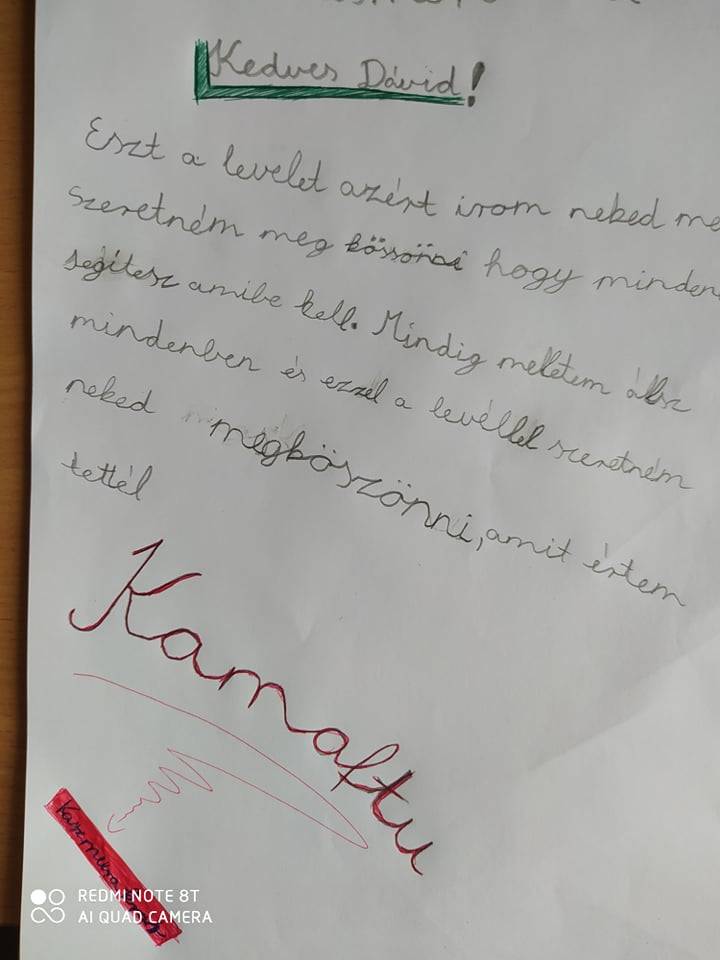 Kedves Dávid!
Eszt a levelet azért irom neked me
szeretném meg kössönni hogy minden
segitesz amibe kell. Mindig melletem álsz
mindenben és ezzel a levéllel szeretném
neked megköszönni, amit értem
tettél
Kamaftu
REDMI NOTE 8T
AI QUAD CAMERA